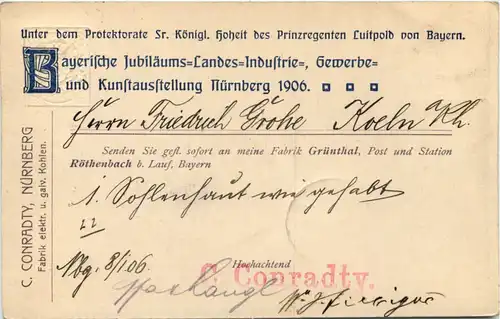 Unter dem Protektorate Sr. Königl. Hoheit des Prinzregenten Luitpold von Bayern.
Bayerische Jubiläums=Landes=Industrie=, Gewerbe=
und Kunstausstellung Nürnberg 1906.
Herrn Friedrich Grohe Koeln Rh.
Senden Sie gefl. sofort an meine Fabrik Grünthal, Post und Station
Röthenbach b. Lauf, Bayern
1. Sohlenhaut wie gehabt
Nbg. 8/1 06.
Hochachtend
C. Conradty.
C. CONRADTY, NÜRNBERG
Fabrik elektr. u. galv. Kohlen.